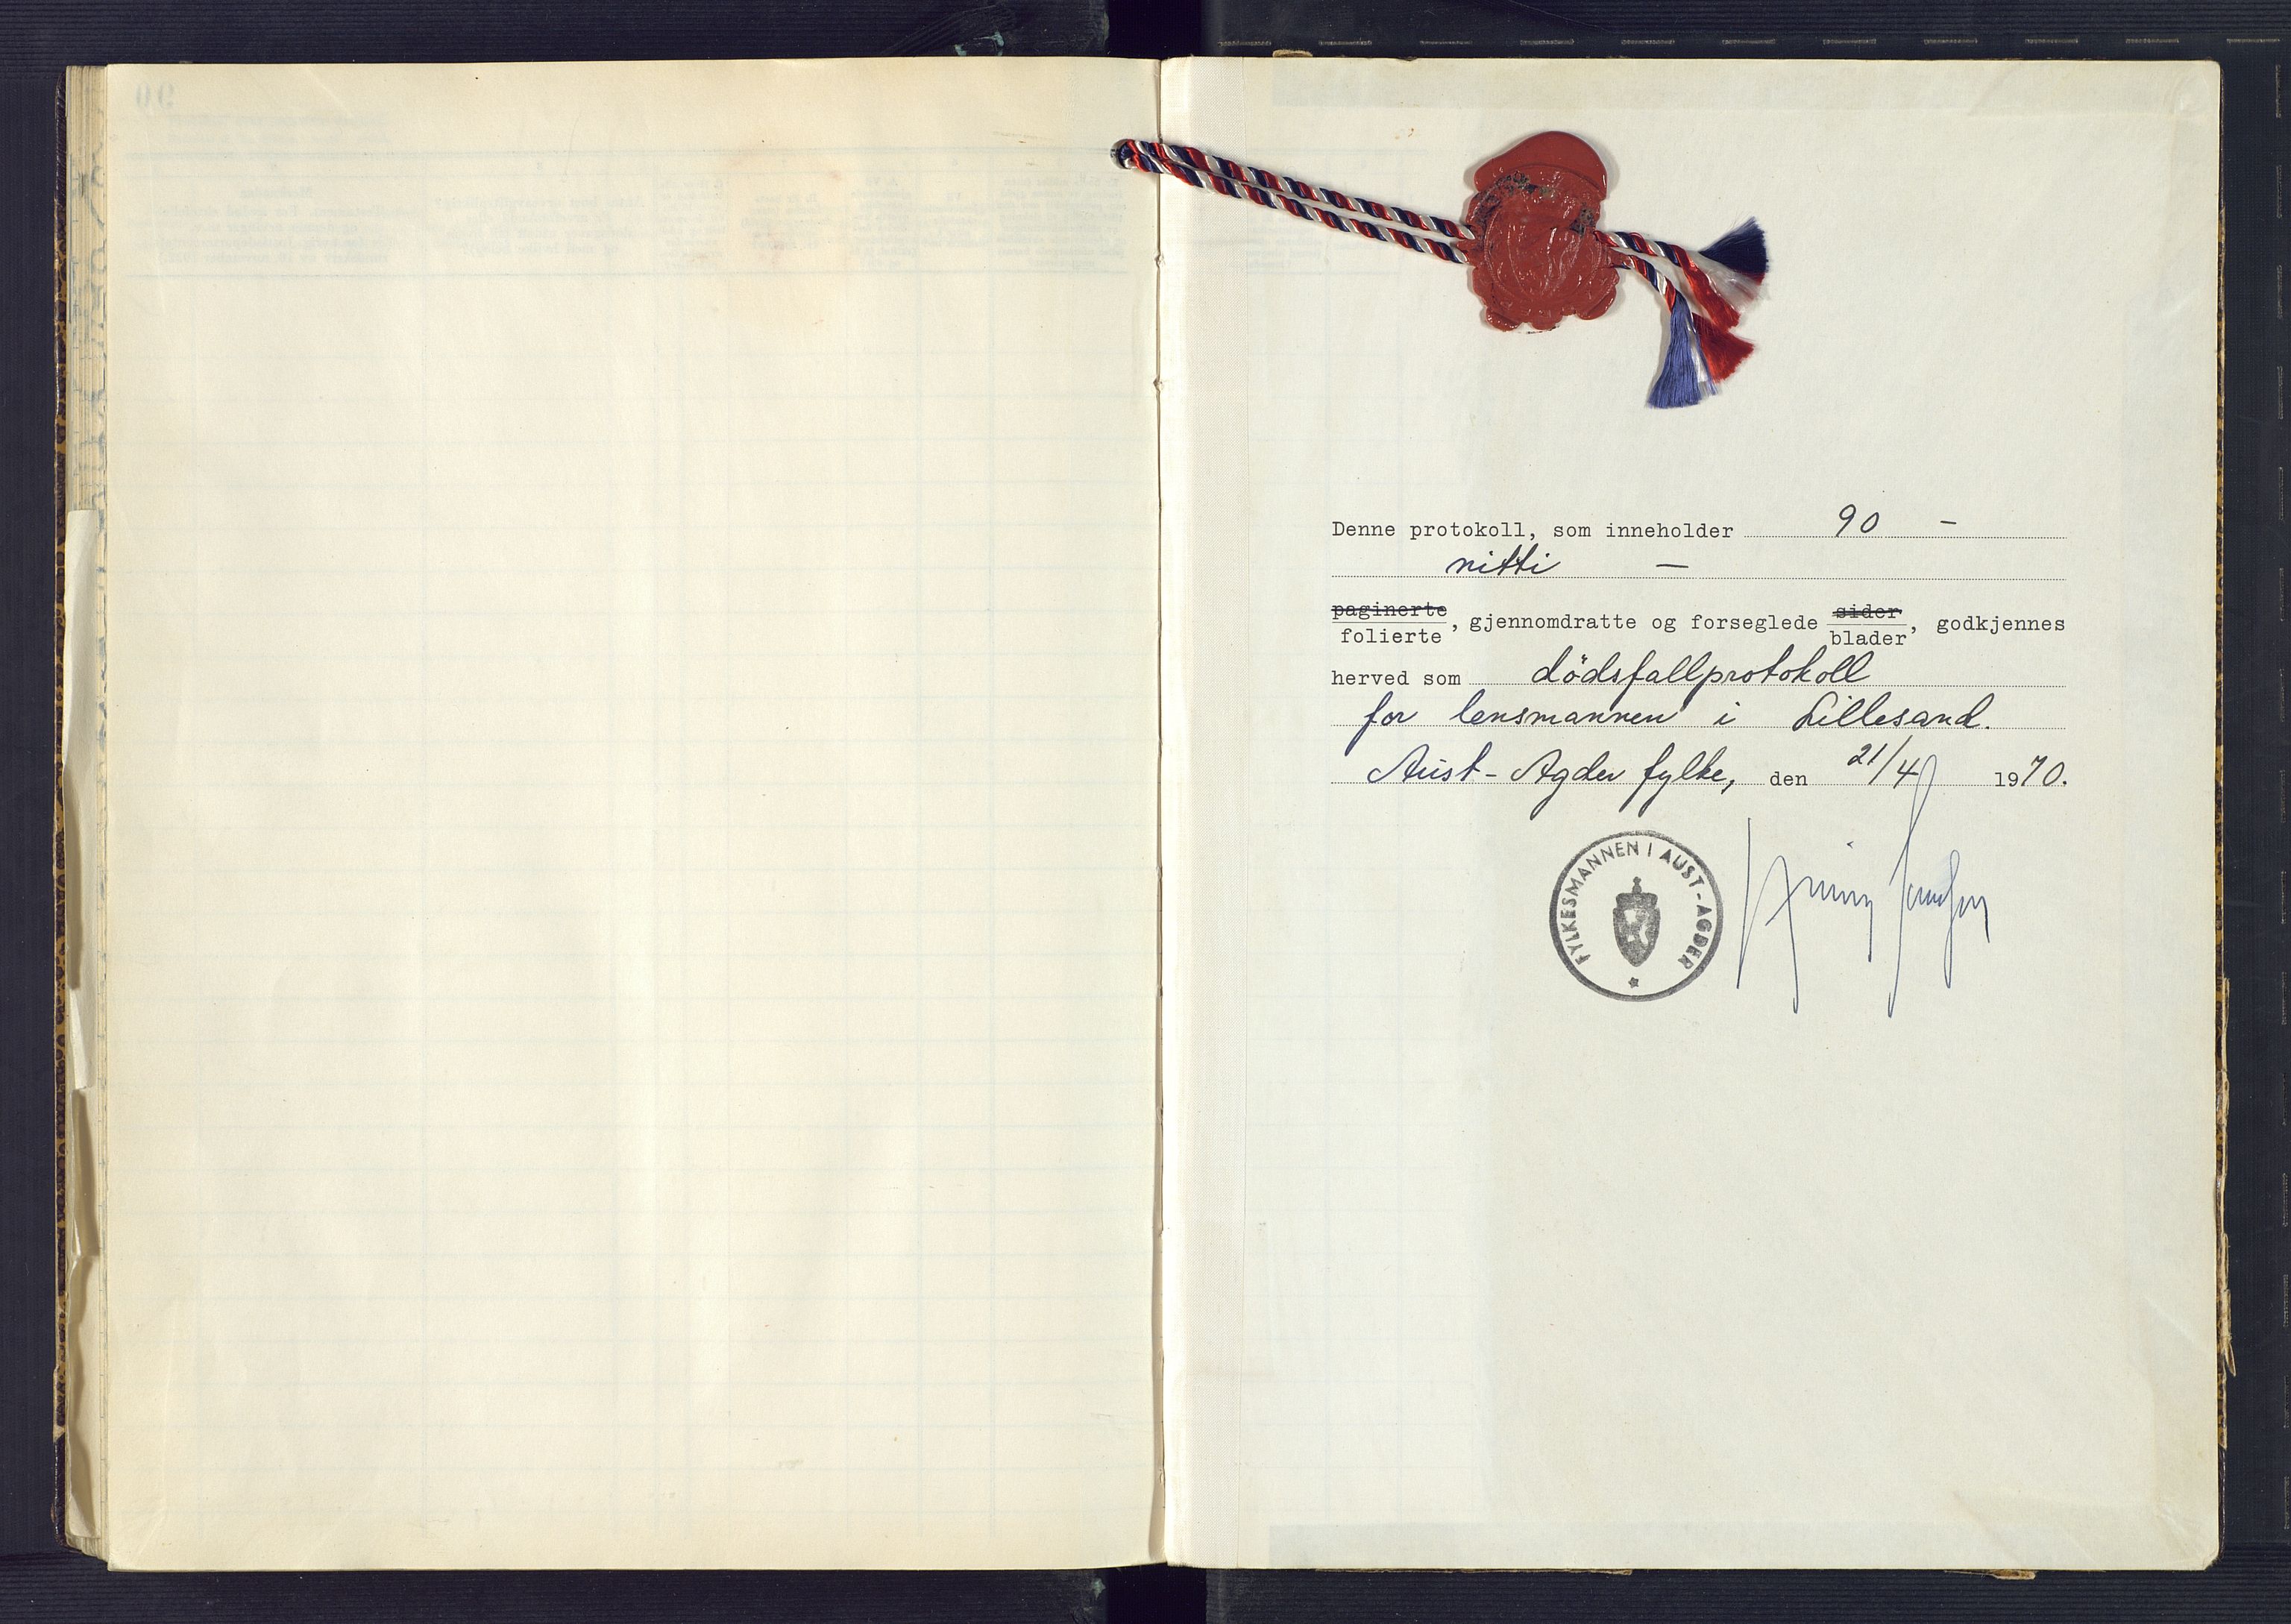 Denne protokoll, som inneholder 90 -
nitti -
paginerte sider
folierte, gjennomdratte og forseglede blader, godkjennes
herved som dödsfallprotokoll
for lensmannen i Lillesand.
Aust-Agder fylke, den 21/4 1970.
FYLKESMANNEN I AUST-AGDER
90